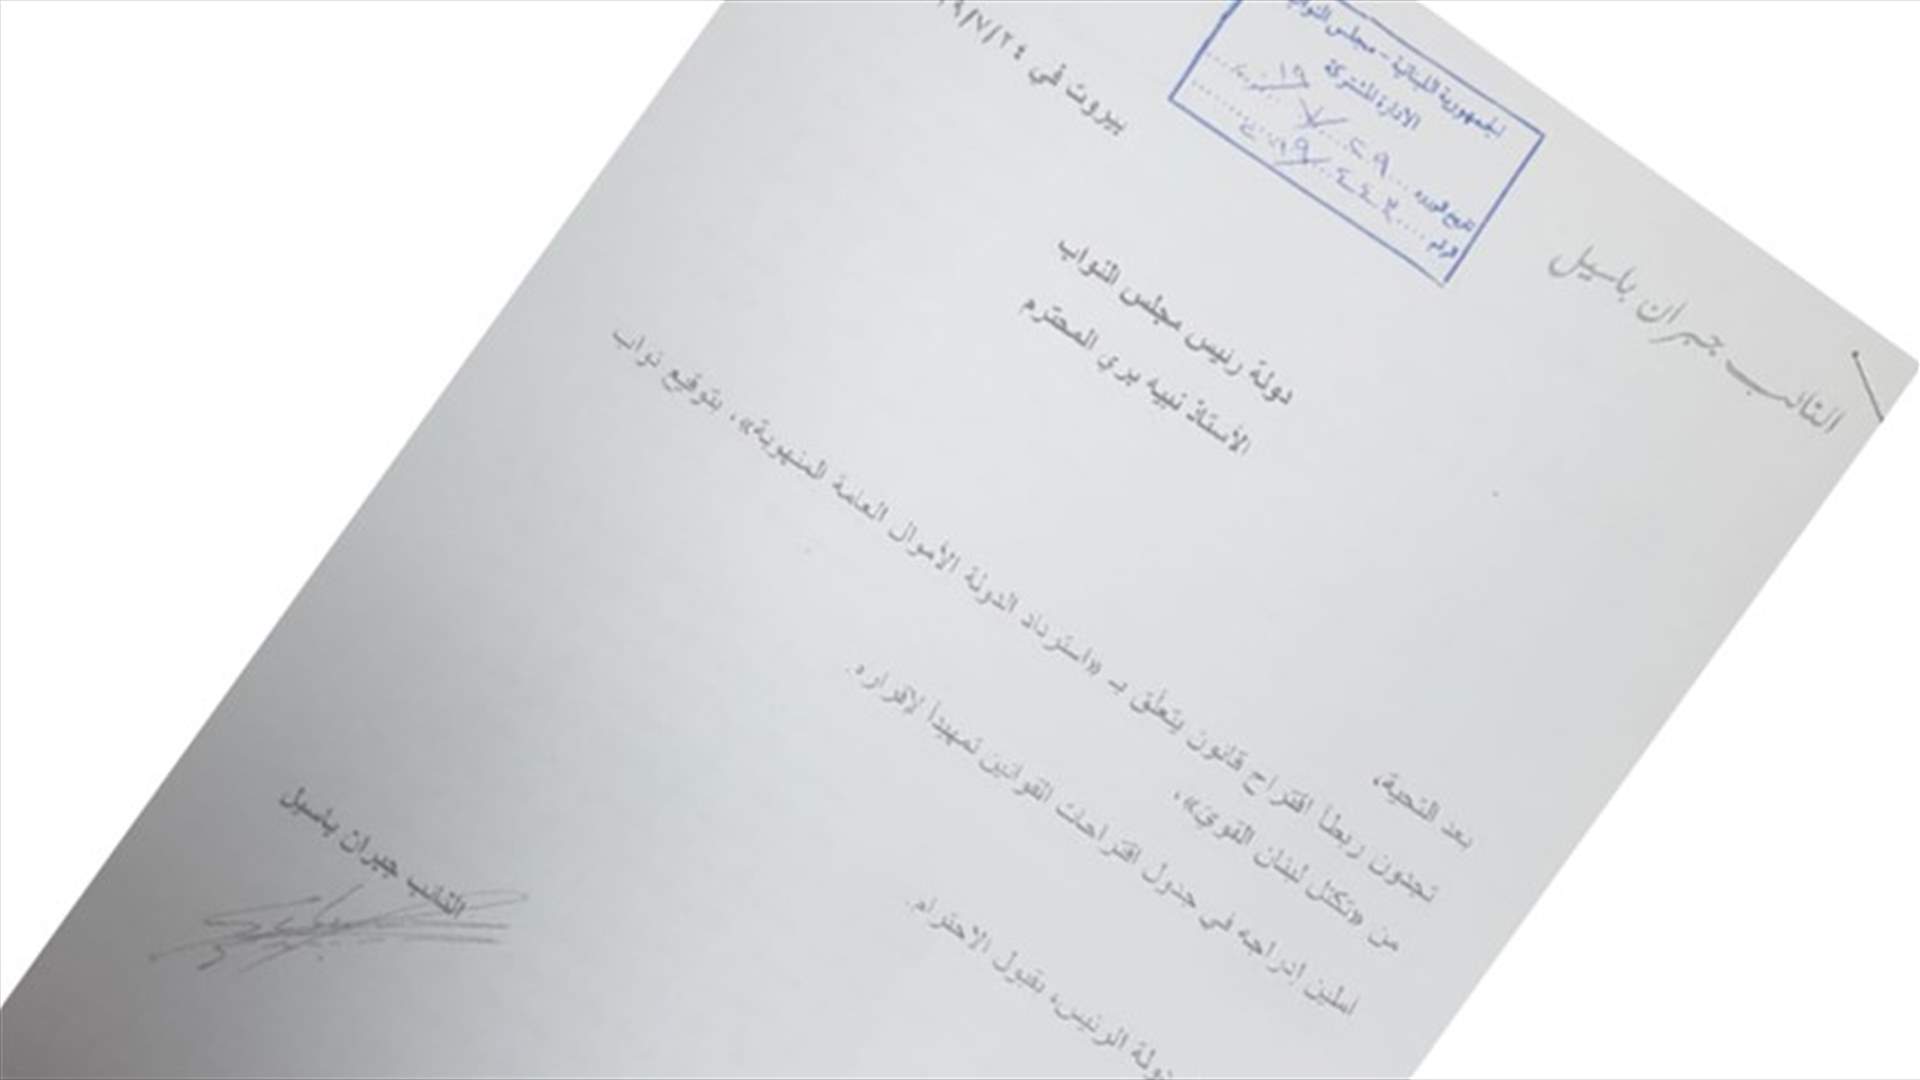 النائب جبران باسيل
الجمهورية اللبنانية - مجلس النواب
الإدارة المشتركة
تاريخ الورود ... ٢٩ / ٧ / ١٩
الرقم
بيروت في ٢٤/٧/١٩
دولة رئيس مجلس النواب
الأستاذ نبيه بري المحترم
بعد التحية،
تجدون ربطاً اقتراح قانون يتعلّق بـ «استرداد الدولة الأموال العامة المنهوبة»، بتوقيع نواب
من «تكتل لبنان القوي»،
آملين إدراجه في جدول اقتراحات القوانين تمهيداً لإقراره.
دولة الرئيس، بقبول الاحترام.
النائب جبران باسيل